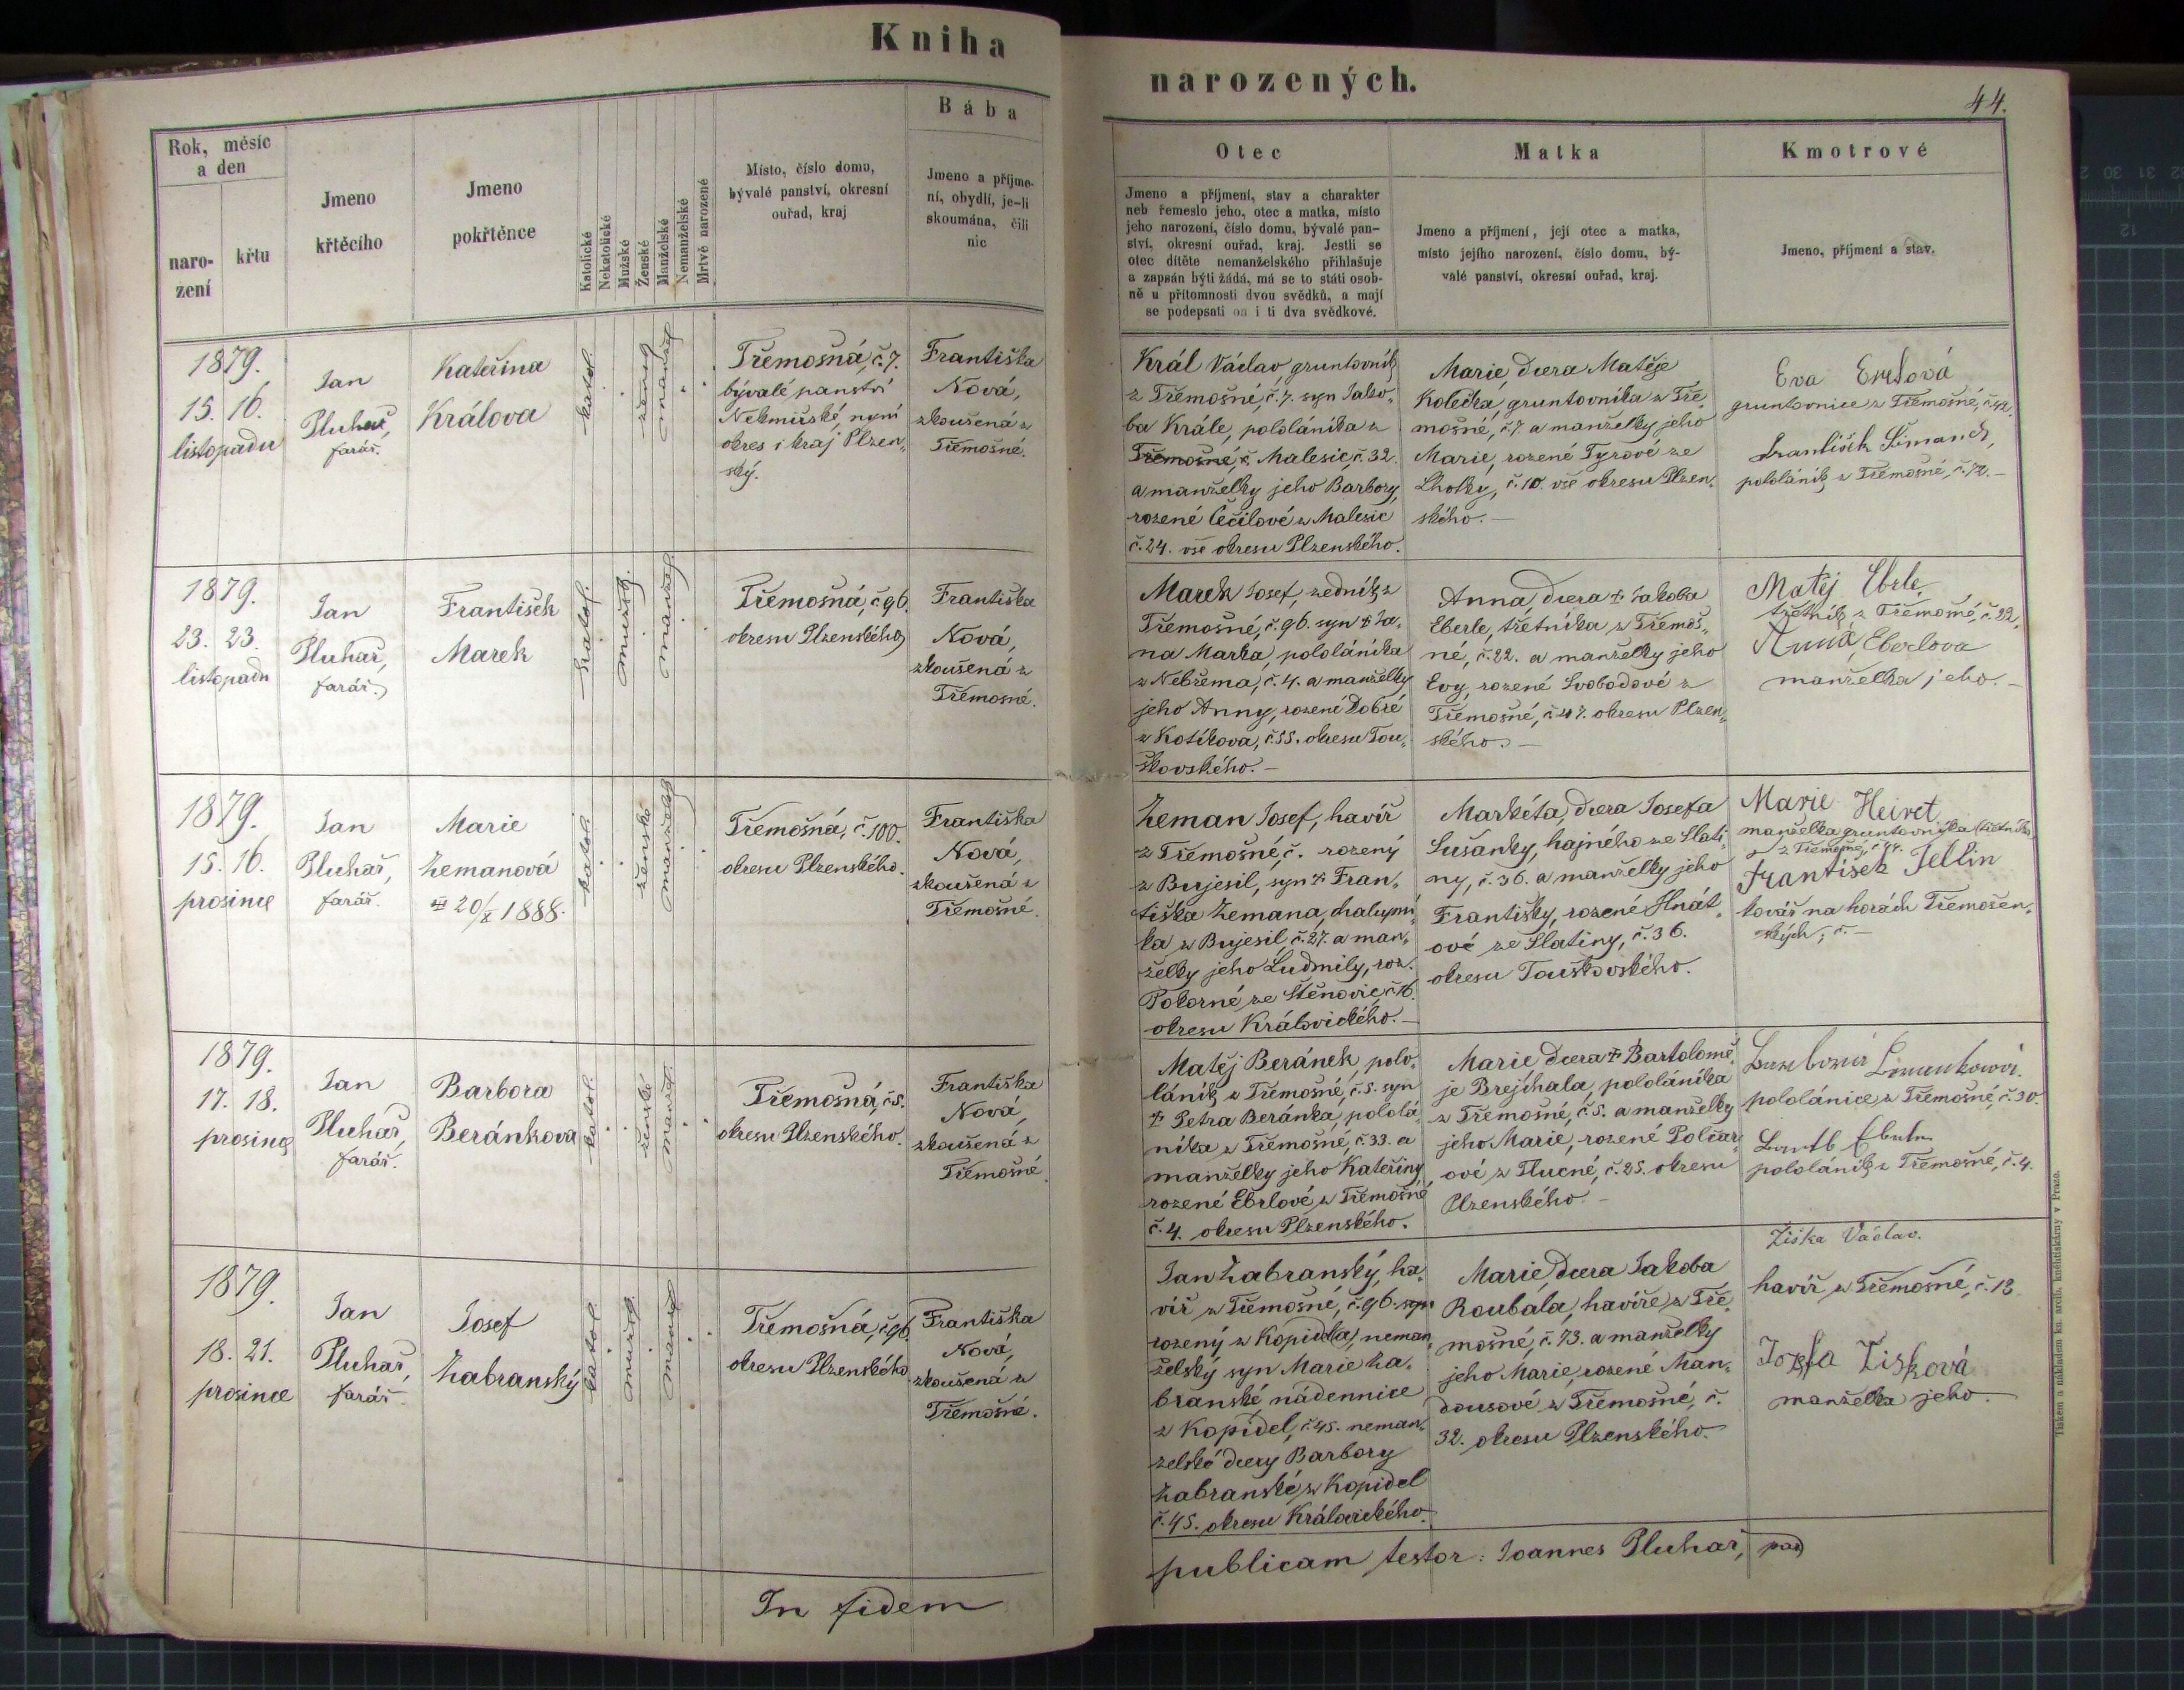 Kniha
narozených.
44.
Rok, měsíc
a den
naro-
zení
křtu
Jmeno
křtěcího
Jmeno
pokřtěnce
Katolické
Nekatolické
Mužské
Ženské
Manželské
Nemanželské
Mrtvě narozené
Místo, číslo domu,
bývalé panství, okresní
ouřad, kraj
Bába
Jmeno a příjme-
ní, obydlí, je-li
skoumána, čili
nic
Otec
Jmeno a příjmení, stav a charakter
neb řemeslo jeho, otec a matka, místo
jeho narození, číslo domu, bývalé pan-
ství, okresní ouřad, kraj. Jestli se
otec dítěte nemanželského přihlašuje
a zapsán býti žádá, má se to státi osob-
ně u přítomnosti dvou svědků, a mají
se podepsati on i ti dva svědkové.
Matka
Jmeno a příjmení, její otec a matka,
místo jejího narození, číslo domu, bý-
valé panství, okresní ouřad, kraj.
Kmotrové
Jmeno, příjmení a stav.
1879.
15. 16.
listopadu
Jan
Pluhař,
farář.
Kateřina
Králova
katol.
žensk
manžel
Třemošná, č. 7.
bývalé panství
Nekmiřské, nyní
okres i kraj Plzen-
ský.
Františka
Nová,
zkoušená z
Třemošné.
Král Václav, gruntovník
z Třemošné, č. 7. syn Jako-
ba Krále, pololaníka z
Třemošné, č. Malesic, č. 32.
a manželky jeho Barbory,
rozené Čečilové z Malesic
č. 24. vše okresu Plzenského.
Marie, dcera Matěje
Kolečka, gruntovníka z Tře-
mošné, č. 7. a manželky jeho
Marie, rozené Tyrové ze
Lhotky, č. 10. vše okresu Plzen-
ského. —
Eva
gruntovnice z Třemošné, č. 42.
František Šimandl,
pololáník z Třemošné, č. 72. —
1879.
23. 23.
listopadu
Jan
Pluhař,
farář.
František
Marek
katol.
mužsk.
manžel
Třemošná, č. 96.
okresu Plzenského
Františka
Nová,
zkoušená z
Třemošné.
Marek Josef, zedník z
Třemošné, č. 96. syn ☩ Ja-
na Marka, pololáníka
z Nebřema, č. 4. a manželky
jeho Anny, rozené Dobré
z Kotíkova, č. 55. okresu Tou-
škovského. —
Anna, dcera ☩ Jakoba
Eberle, třetníka z Třemoš-
né, č. 22. a manželky jeho
Evy, rozené Svobodové z
Třemošné, č. 47. okresu Plzen-
ského. —
Matěj Ebrle
třetník z Třemošné, č. 22.
Anna Eberlova
manželka jeho. —
1879.
15. 16.
prosince
Jan
Pluhař,
farář.
Marie
Zemanová
20/X 1888.
katol.
ženské
manželsk
Třemošná, č. 100.
okresu Plzenského.
Františka
Nová,
zkoušená z
Třemošné.
Zeman Josef, havíř
z Třemošné, č. rozený
z Bujesil, syn ☩ Fran-
tiška Zemana, chalupní-
ka z Bujesil, č. 27. a man-
želky jeho Ludmily, roz.
Pokorné ze Stěnovic, č. 16.
okresu Královického. —
Markéta, dcera Josefa
Sušanky, hajného ze Slati-
ny, č. 36. a manželky jeho
Františky, rozené Hnát-
ové ze Slatiny, č. 36.
okresu Touškovského.
Marie Heiret
manželka gruntovníka
z Třemošné, č. 44.
František Jellin
kovář na horách Třemošen-
ských, č. —
1879.
17. 18.
prosince
Jan
Pluhař,
farář.
Barbora
Beránkova
katol.
ženské
manžel.
Třemošná, č. 5.
okresu Plzenského.
Františka
Nová,
zkoušená z
Třemošné
Matěj Beránek, polo-
láník z Třemošné, č. 5. syn
☩ Petra Beránka, pololá-
níka z Třemošné, č. 33. a
manželky jeho Kateřiny,
rozené Ebrlové z Třemošné
č. 4. okresu Plzenského.
Marie dcera ☩ Bartolomě-
je Brejchala, pololáníka
z Třemošné, č. 5. a manželky
jeho Marie, rozené Polčar-
ové z Tlucné, č. 25. okresu
Plzenského —
pololánice z Třemošné, č. 30.
pololáník z Třemošné, č. 4.
1879.
18. 21.
prosince
Jan
Pluhař,
farář
Josef
Zabranský
katol
mužsk
manžel
Třemošná, č. 96.
okresu Plzenského
Františka
Nová,
zkoušená z
Třemošné.
Jan Zabranský, ha-
víř z Třemošné, č. 96. syn
rozený z Kopidel(a), neman-
želský syn Marie Za-
branské nádennice
z Kopidel, č. 45. neman-
želské dcery Barbory
Zabranské, z Kopidel
č. 45. okresu Královického.
Marie, dcera Jakoba
Roubala, havíře z Tře-
mošné, č. 73. a manželky
jeho Marie, rozené Man-
dousové z Třemošné, č.
32. okresu Plzenského.
Ziska Václav.
havíř z Třemošné, č. 13
Josefa Zisková
manželka jeho.
In fidem
publicam testor: Joannes Pluhař,
Tiskem a nákladem kn. arcib. knihtiskárny v Praze.